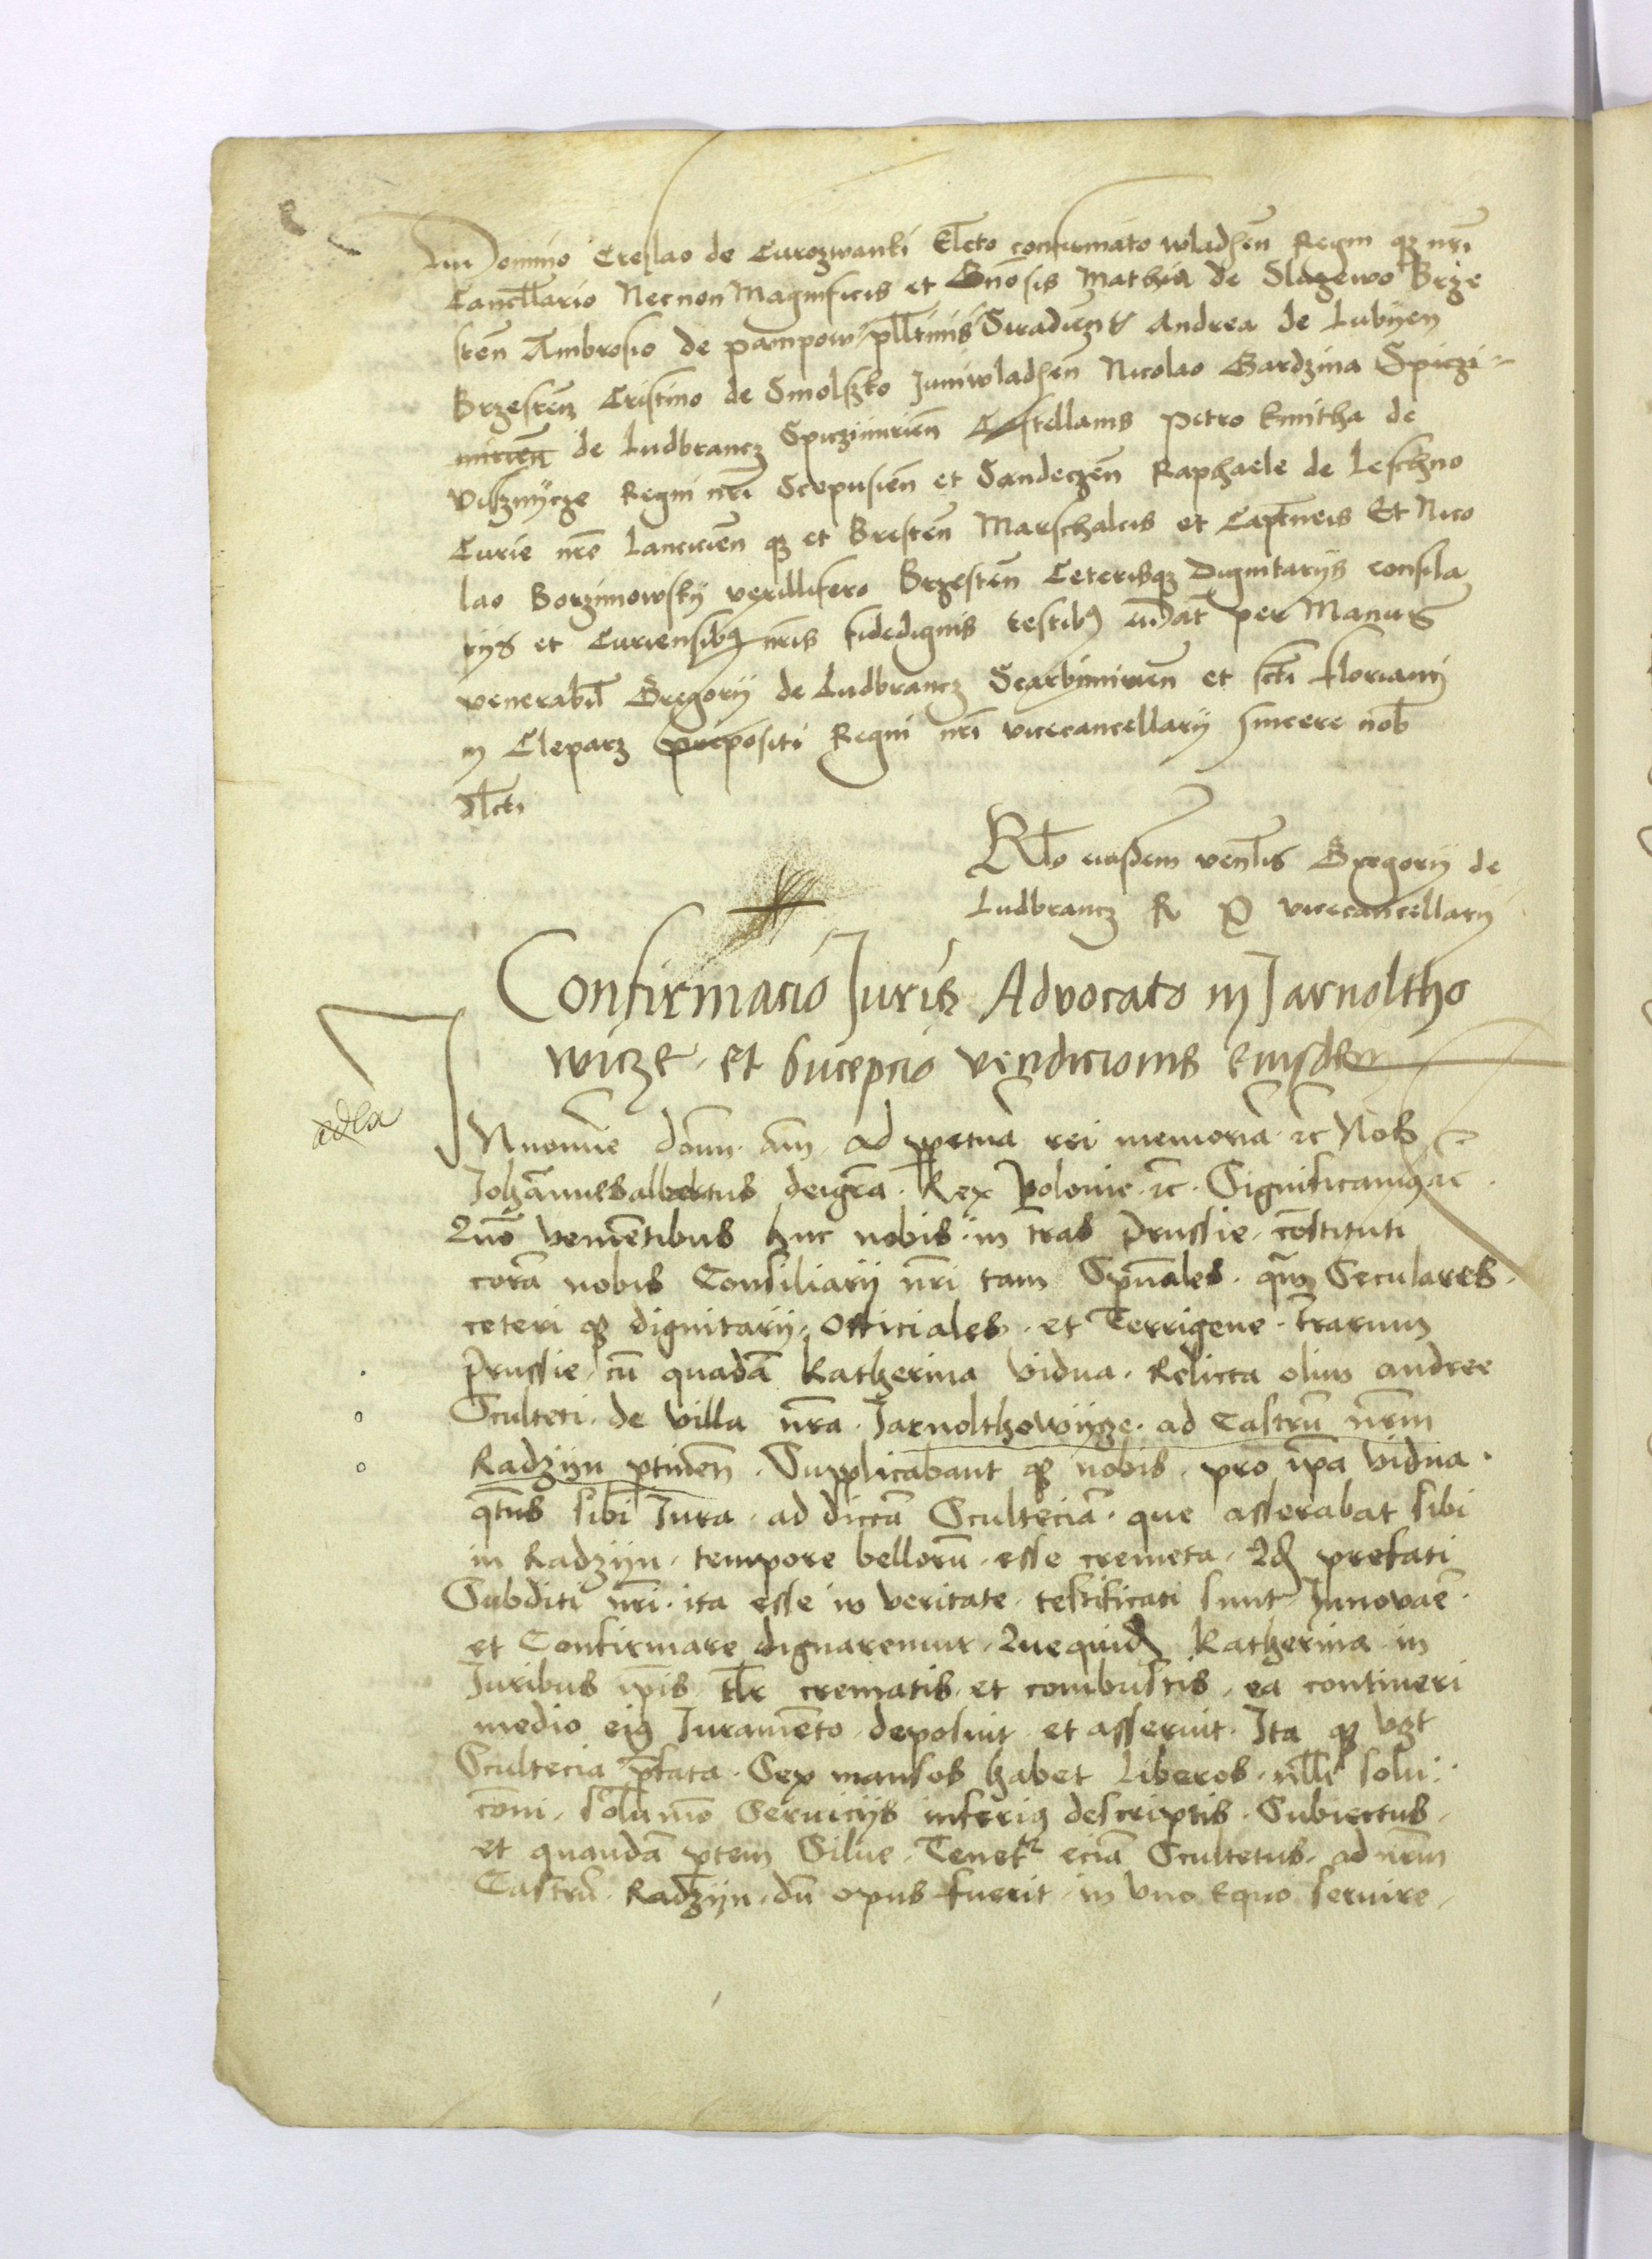 Domino Creslao de Curozwanki Elcto confirmato wladslen Regni qz nri
Cancllario Necnon Magnificis et Gnosis Mathia de Sluzewo Brze
sten Ambrosio de pampow plltinis Siradiens Andrea de Lubyen
Brzestenz Cristino de Smolsko Juniwladslen Nicolao Gardzina Spiczi
mirien de Ludbrancz Spiczimirien Castellanis Petro kmitha de
visznycze Regni nri Scepusien et Sandeczen Raphaele de Leschno
Curie nre Lancicien qz et Bresten Marschalcis et Captneis Et Nico
lao Borzimowsky vexillifero Brzesten Ceterisqz Dignitarys consila
rys et Curiensibz nris fidedignis testibz Dat per Manus
venerabil Gregorij de Ludbrancz Scarbimirien et scti floriani
in Cleparz prepositi Regni nri vicecancellarij sincere nob
dlcti
Rlo eiusdem venlis Gregorij de
Ludbrancz R P vicecancellarij
Confirmacio Juris Advocato in Jarnoltho
wicze et Sucepcio vendicionis eiusdem
adla
In nomie domi am ad ppetua rei memoria rc Nos
Johannesalbertus deigra Rex Polonie rc Significamus rc
Quo venietibus huc nobis in tras Prussie costituti
cora nobis Consiliarij nri tam Spuales qz Seculares
ceteri qz dignitarij officiales et Terrigene trarum
Prussie cu quada Katherina vidua Relicta olim andree
Sculteti de villa nra Jarnolthowijcze ad Castru nrm
Radzijn ptinen Supplicabant qz nobis pro ipa vidua
qtns sibi Jura ad dicta Scultecia que asserabat sibi
in Radzijn tempore belloru esse cremeta qd prefati
Subditi nri ita esse in veritate testificati sunt Innovare
et Confirmare dignaremur Quequid Katherina in
Juribus ipis tlr crematis et combustis ea contineri
medio eius Jurameto deposuit et asseruit Ita qz vzt
Scultecia pfata Sex mansos habet Liberos nlli solu
coni solumo Seruicijs inferius descriptis Subiectus
et quanda ptem Silue Tenetr ecia Scultetus ad nrm
Castru Radzijn du opus fuerit in vno Equo seruire